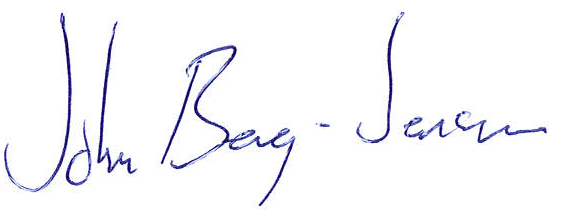 John Berg-Jensen